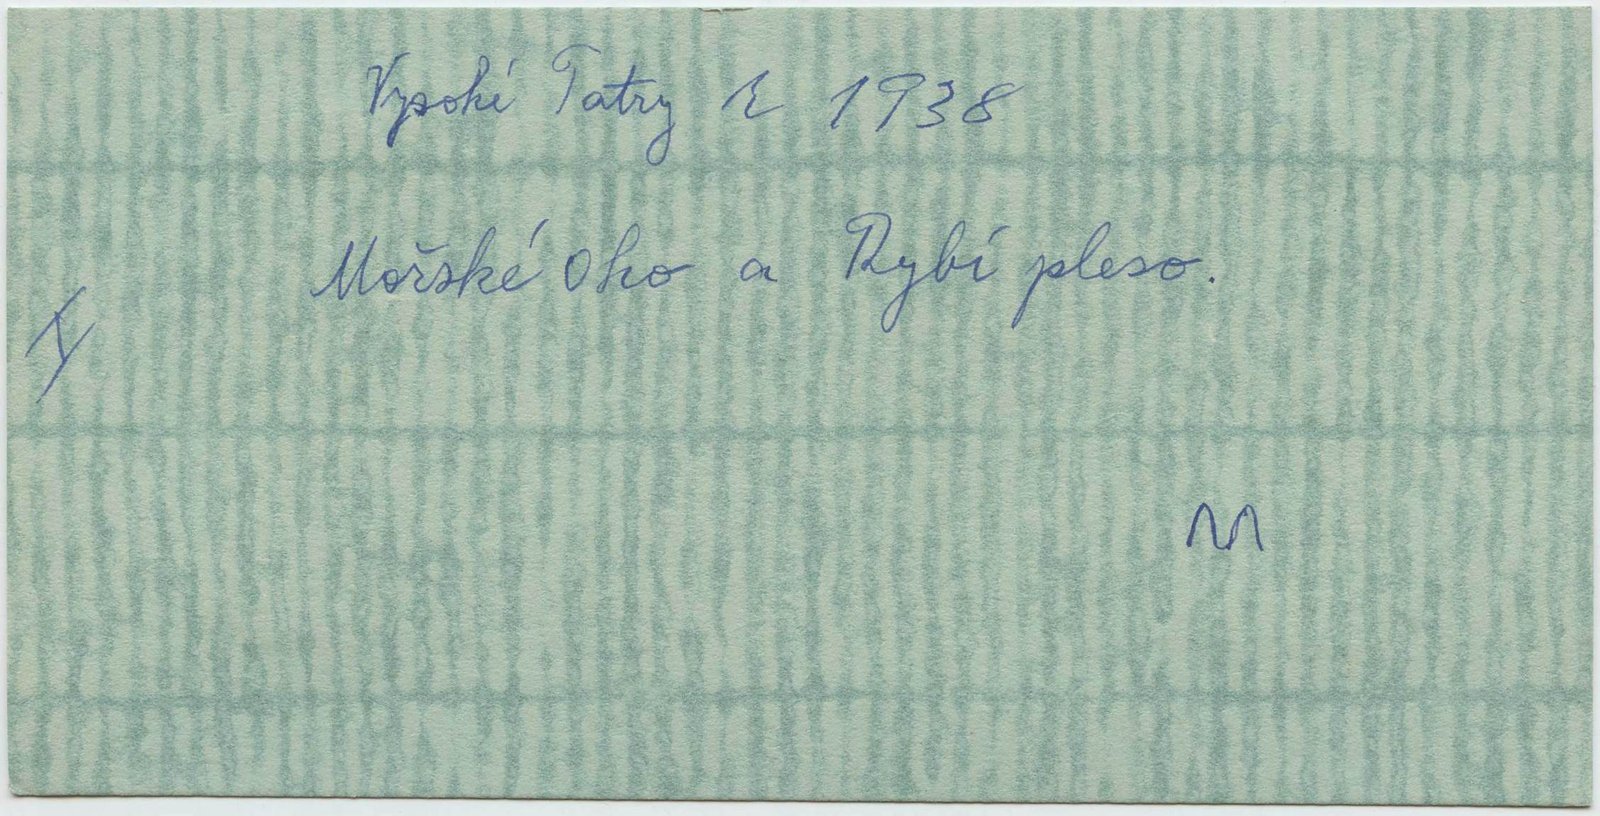 Vysoké Tatry r 1938
Mořské Oko a Rybí pleso.
M